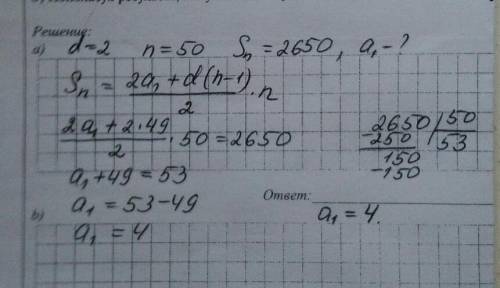 Решение:
a) d=2 n=50 Sₙ=2650, a₁-?
Sₙ = 2a₁+d(n-1)/2 · n
2a₁+2·49/2 · 50 = 2650
a₁+49=53
a₁=53-49
a₁=4
2650 | 50
250 53
150
-150
Ответ:
a₁=4.
b)